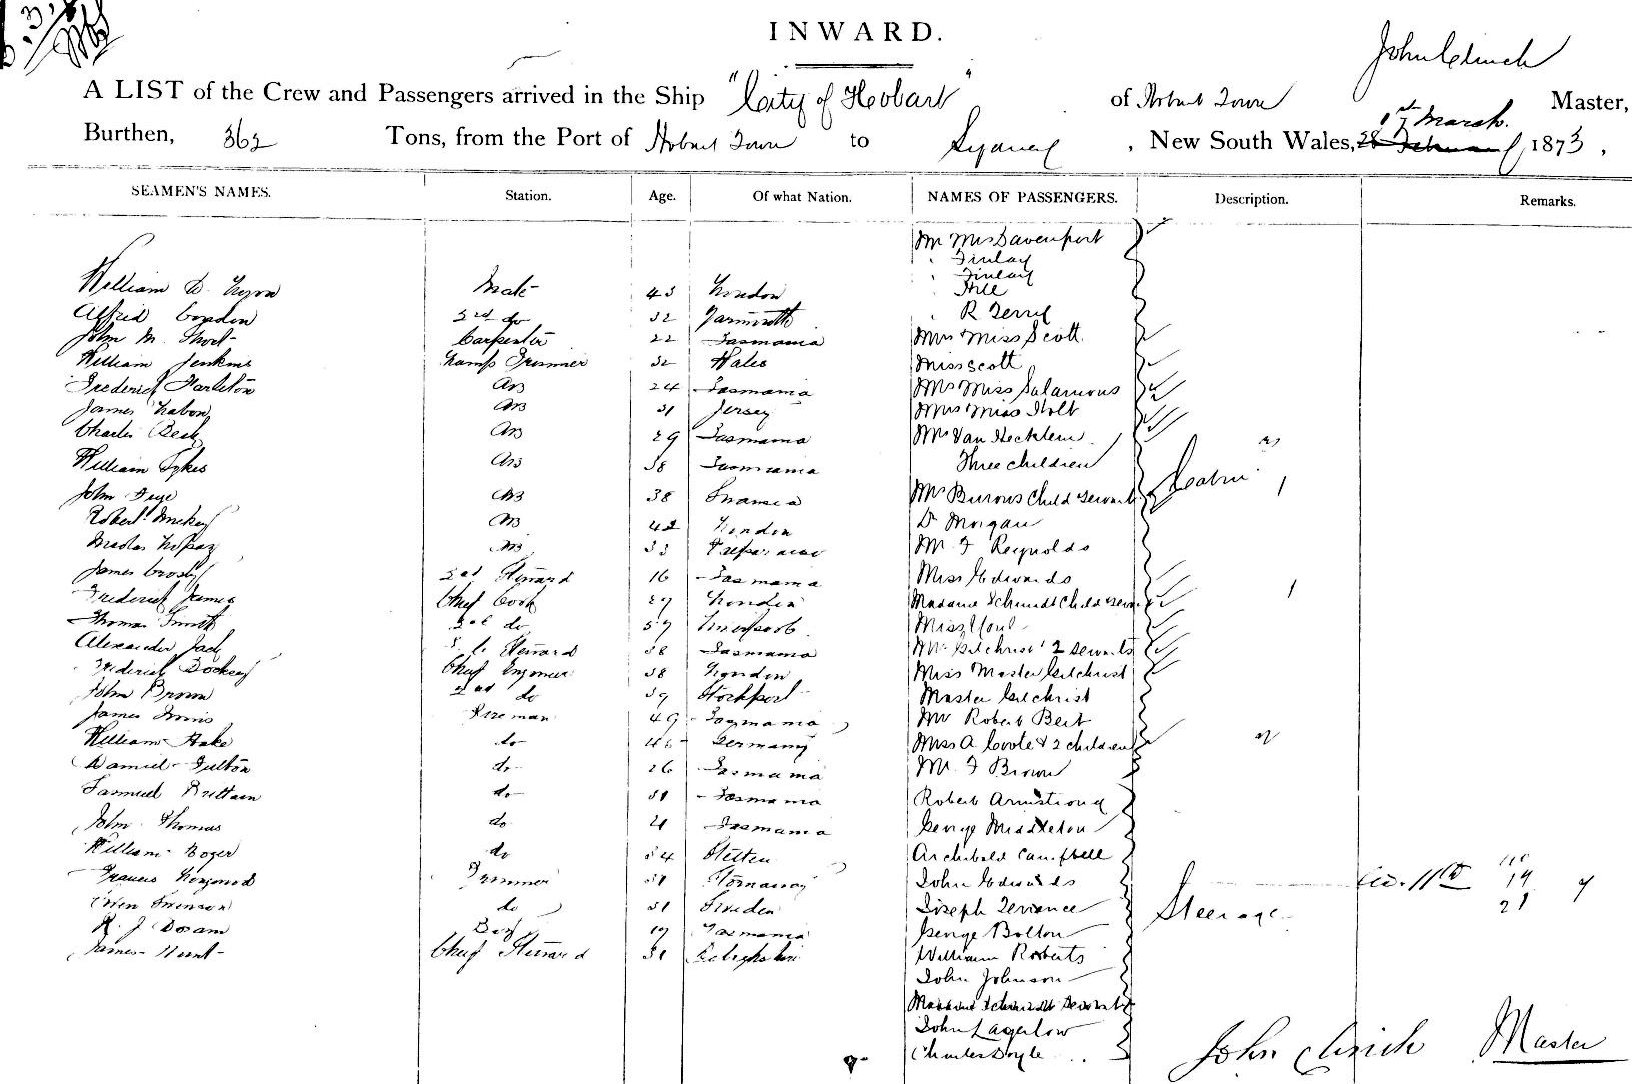 INWARD.
John Clinch
A LIST of the Crew and Passengers arrived in the Ship "City of Hobart" of Hobart Town Master,
1st March
Burthen, 362 Tons, from the Port of Hobart Town to Sydney, New South Wales, 28 February 1873,
SEAMEN'S NAMES. Station. Age. Of what Nation. NAMES OF PASSENGERS. Description. Remarks.
Mr Mrs Davenport
" Finlay
" Finlay
William D. Mate 43 London " Hill
Alfred 2nd do 32 Yarmouth " R Terry
John M. Short Carpenter 22 Tasmania Mrs Miss Scott
William Jenkins Lamp Trimmer 32 Wales Miss Scott
Frederick AB 24 Tasmania Mrs Miss Salamons
James AB 31 Jersey Mrs Miss Holt
Charles Beck AB 29 Tasmania Mrs Van
William Sykes AB 38 Tasmania Three children
John AB 38 Swansea Mrs Burows Child Servant Cabin
Robert AB 42 London Dr Morgan
AB 33 Mr F Reynolds
James Crosby 2nd Steward 16 Tasmania Miss Edwards
Frederick James Chief Cook 29 London Madame Schmidt Child &
Thomas Smith 2nd do 37 Liverpool Miss
Alexander Jack Steward 38 Tasmania Mrs Gilchrist 2 servants
Frederick Chief Engineer 38 London Miss Master Gilchrist
John Brown 2nd do 39 Stockport Master Gilchrist
James Fireman 49 Tasmania Mr Robert Bert
William Hake do Germany Miss A Coote & 2 children
Daniel Fulton do 26 Tasmania Mr F Brown
Samuel Brittain do 31 Tasmania Robert Armstrong
John Thomas do 21 Tasmania George Middleton
William do 34 Stettin Archibald Campbell
Francis Trimmer 31 Stornaway John Edwards
Owen Swenson do 31 Sweden Joseph Terrance Steerage
R. J. Doram Boy 17 Tasmania George Bolton
James Hunt Chief Steward 31 William Roberts
John Johnson
Madame Schmidt Servant
John Lagerlow
Charles Doyle
John Clinch Master